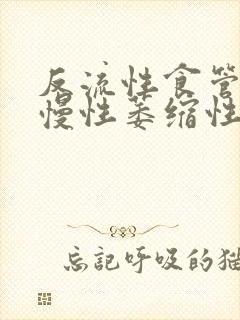 反流性食管
慢性萎缩性
忘记呼吸的猫